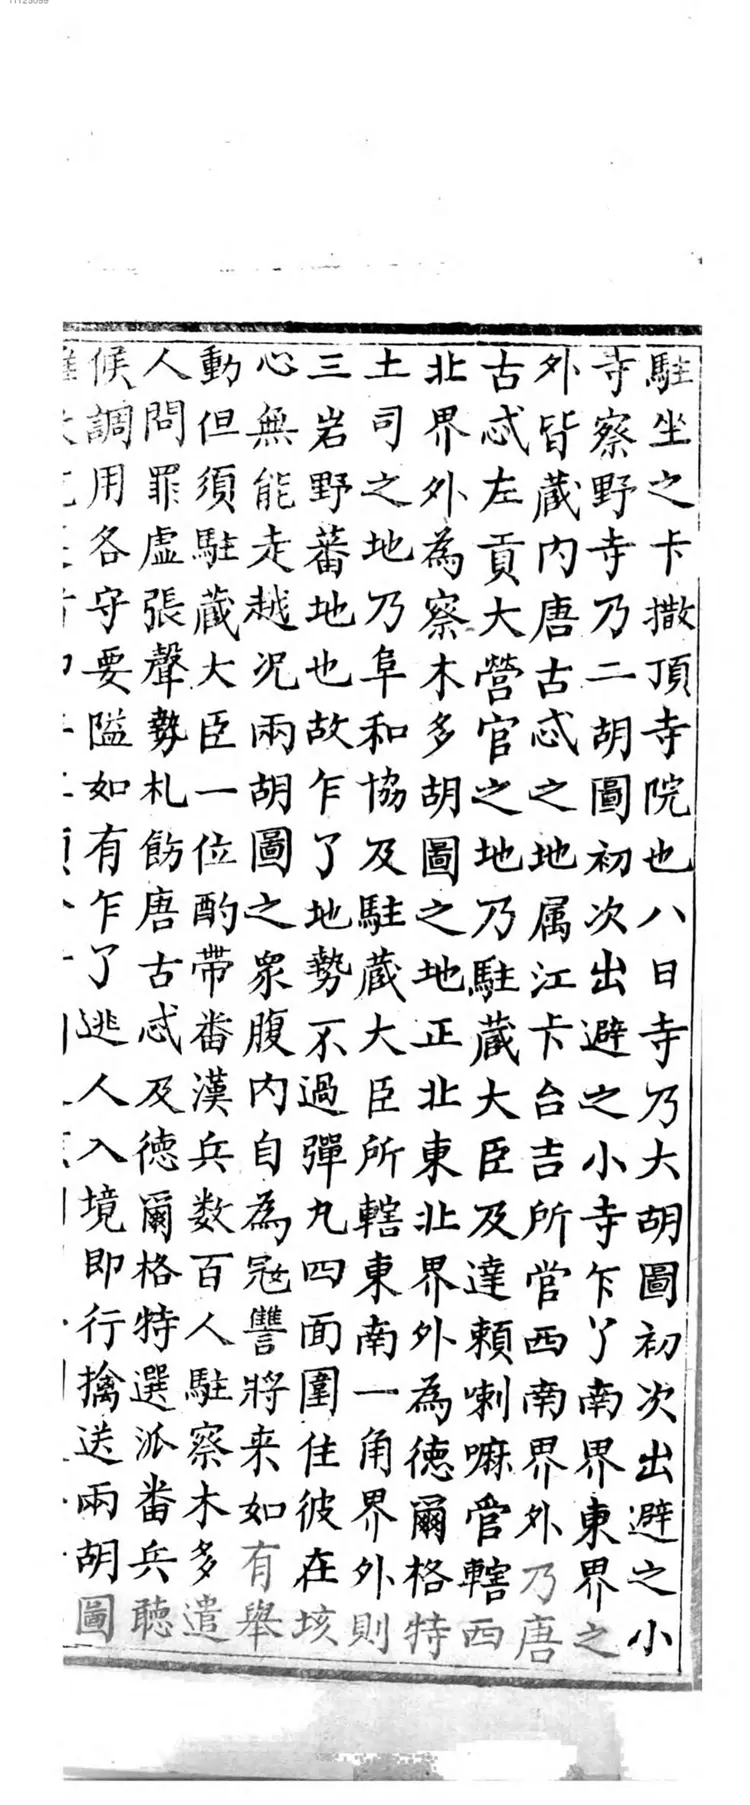 駐坐之卡撒頂寺院也八日寺乃大胡圖初次出避之小
寺察野寺乃二胡圖初次出避之小寺乍丫南界東界之
外皆蔵内唐古忒之地属江卡台吉所官西南界外乃唐
古忒左貢大營官之地乃駐蔵大臣及達賴喇嘛管轄西
北界外為察木多胡圖之地正北東北界外為德爾格特
土司之地乃阜和協及駐蔵大臣所轄東南一角界外則
三岩野蕃地也故乍了地勢不過彈丸四面圍住彼在垓
心無能走越况兩胡圖之衆腹内自為冦讐將来如有舉
動但須駐蔵大臣一位酌帶畨漢兵数百人駐察木多遣
人問罪虚張聲勢札飭唐古忒及德爾格特選派畨兵聴
候調用各守要隘如有乍了逃人入境即行擒送兩胡圖